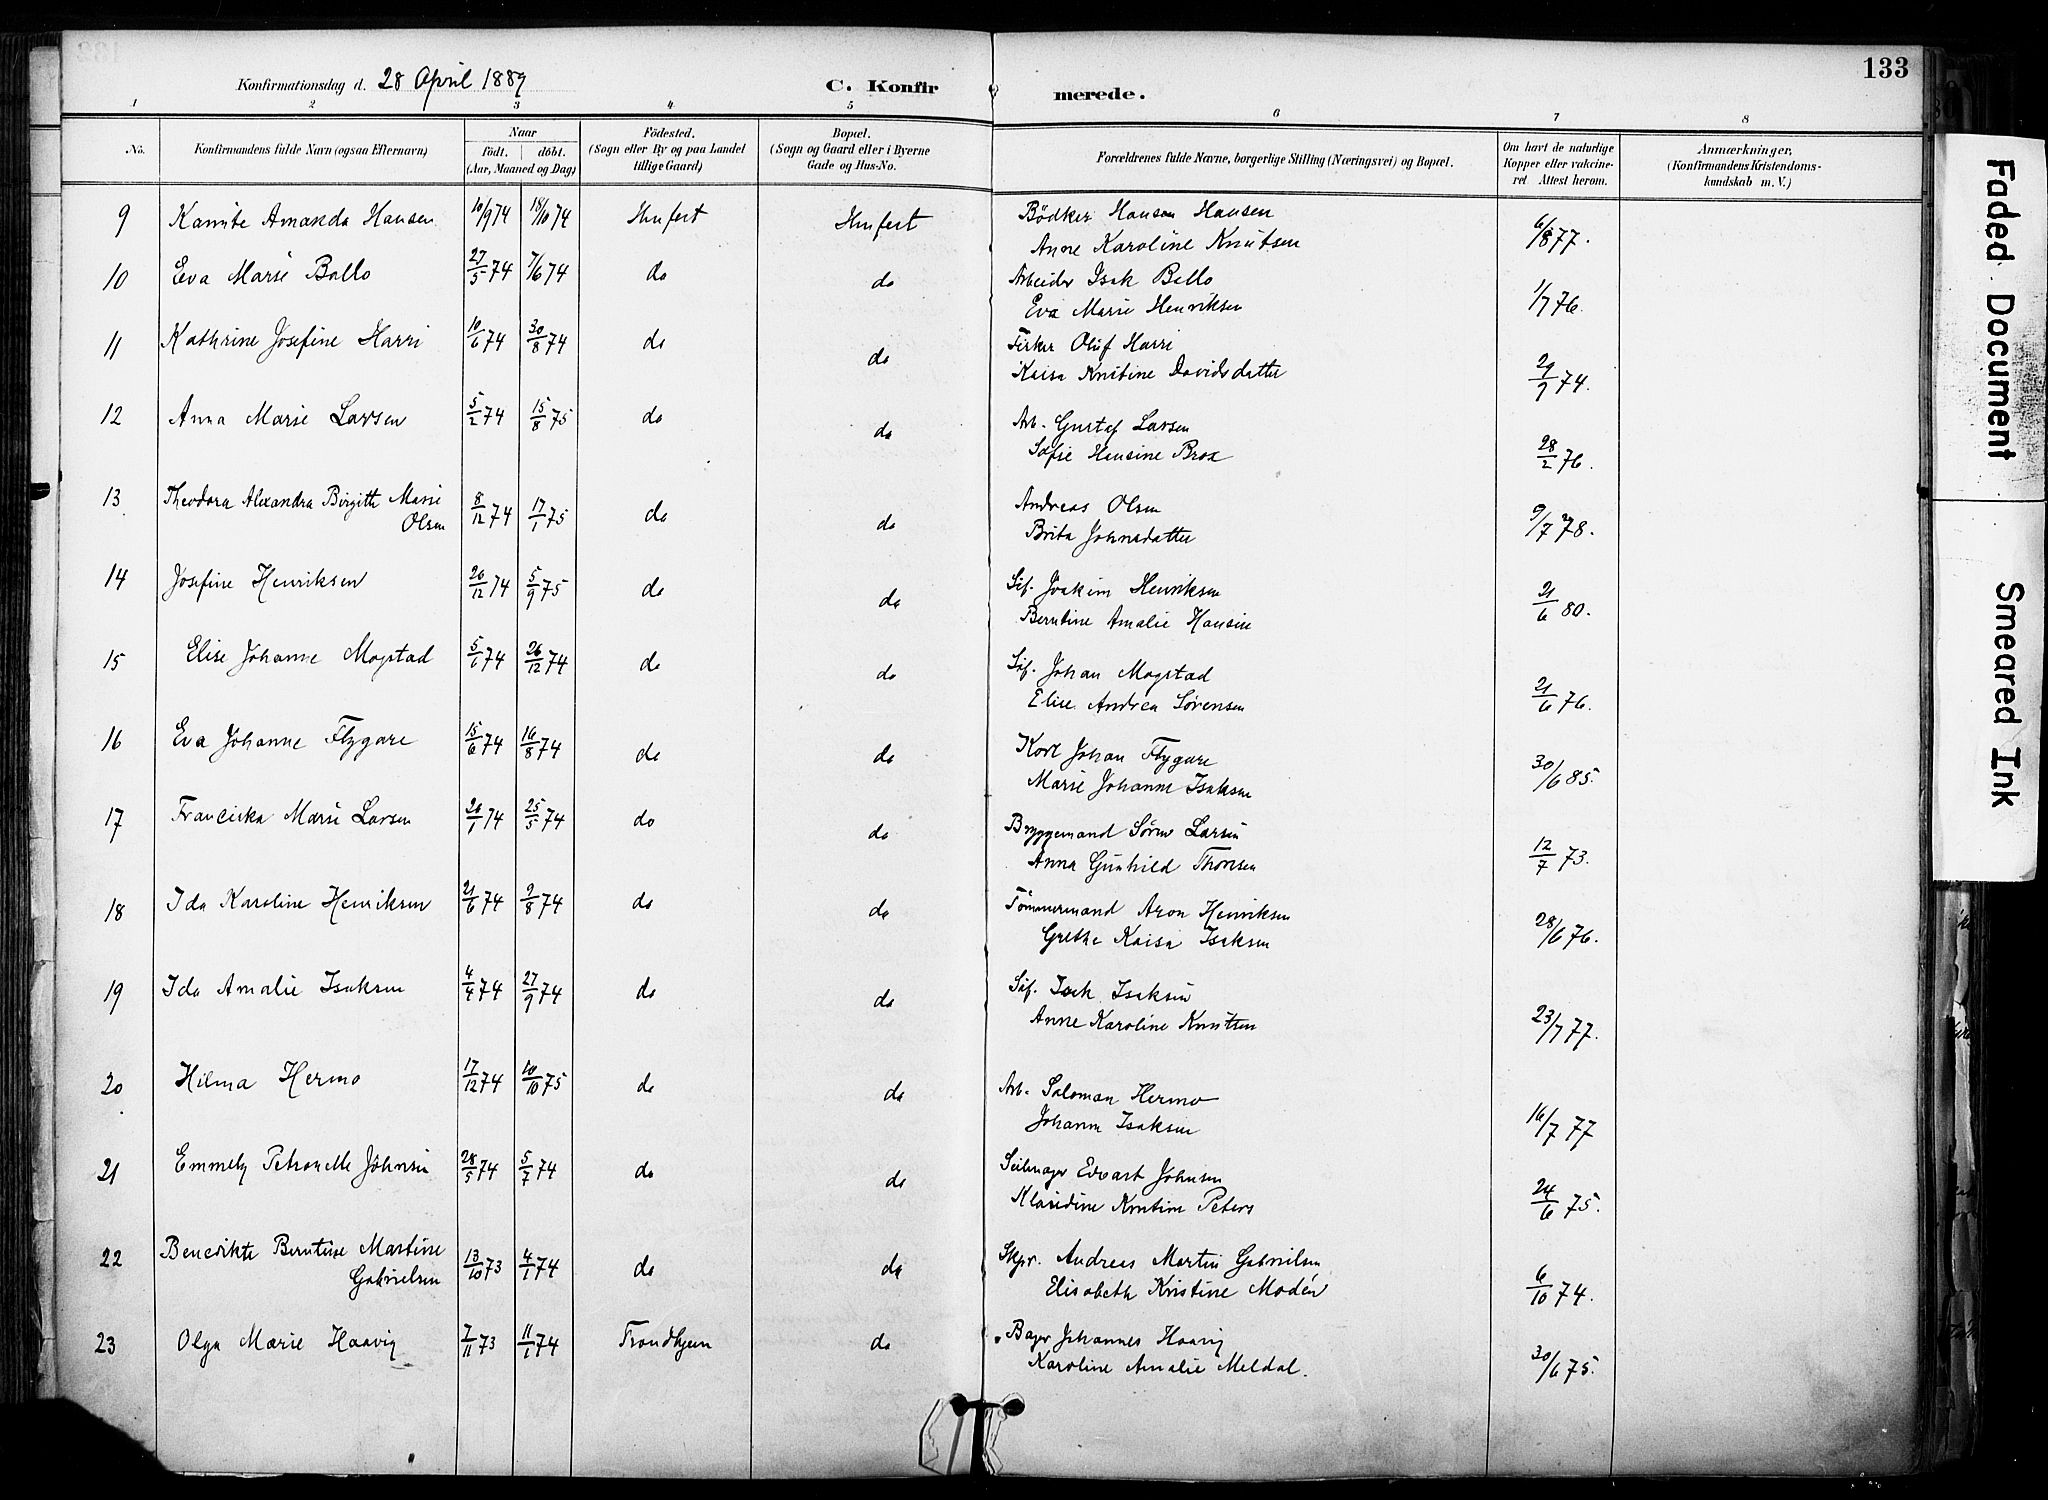 133
Konfirmationsdag d. 28 April 1889
C. Konfirmerede.
1 2 3 4 5 6 7 8
No.
Konfirmandens fulde Navn (ogsaa Efternavn)
Naar
födt. döbt.
(Aar, Maaned og Dag)
Födested.
(Sogn eller By og paa Landet
tillige Gaard)
Bopæl.
(Sogn og Gaard eller i Byerne
Gade og Hus-No.
Forældrenes fulde Navne, borgerlige Stilling (Næringsvei) og Bopæl.
Om havt de naturlige
Kopper eller vakcine-
ret Attest herom.
Anmærkninger,
(Konfirmandens Kristendoms-
kundskab m. V.)
9 Kamite Amanda Hansen 10/9 74 18/10 74 Hmfest Hmfest Bödker Hansen Hansen 6/8 77.
Anne Karoline Knutsen
10 Eva Marie Ballo 27/5 74 7/6 74 do do Arbeider Isak Ballo 1/7 76.
Eva Marie Henriksen
11 Kathrine Josefine Harri 10/6 74 30/8 74 do do Fisker Oluf Harri 29/9 74.
Kaisa Kristine Davidsdatter
12 Anna Marie Larsen 5/2 74 15/8 75 do do Arb. Gustaf Larsen 28/2 76.
Sofie Hansine Brox
13 Theodora Alexandra Birgith Marie 8/12 74 17/1 75 do do Andreas Olsen 9/7 78.
Olsen Brita Johnsdatter
14 Josefine Henriksen 20/12 74 5/9 75 do do Söf. Joakim Henriksen 21/6 80.
Berntine Amalie Hansen
15 Elise Johanne Mogstad 5/6 74 26/12 74 do do Söf. Johan Mogstad 21/6 76.
Elise Andrea Sörensen
16 Eva Johanne Flygare 15/6 74 16/8 74 do do Karl Johan Flygare 30/6 85.
Marie Johanne Isaksen
17 Franciska Marie Larsen 20/1 74 25/5 74 do do Bryggemand Sören Larsen 12/7 73.
Anna Gunhild Thoresen
18 Ida Karoline Henriksen 21/6 74 9/8 74 do do Tömmermand Aron Henriksen 28/6 76.
Grethe Kaisa Isaksen
19 Ida Amalie Isaksen 4/4 74 27/9 74 do do Söf. Isak Isaksen 23/7 77.
Anne Karoline Knutsen
20 Hilma Hermo 17/12 74 10/10 75 do do Arb. Saloman Hermo 16/7 77
Johanne Isaksen
21 Emmely Petronelle Johnsen 28/5 74 5/7 74 do do Seilmager Edvart Johnsen 24/6 75.
Klaudine Kristine Peters
22 Benedikte Berntine Martine 13/10 73 4/1 74 do do Skpr. Andreas Martin Gabrielsen 6/10 74.
Gabrielsen Elisabeth Kristine Modén
23 Olga Marie Haavig 7/11 73 11/1 74 Trondhjem do Bager Johannes Haavig 30/6 75.
Karoline Amalie Meldal.
Faded Document
Smeared Ink